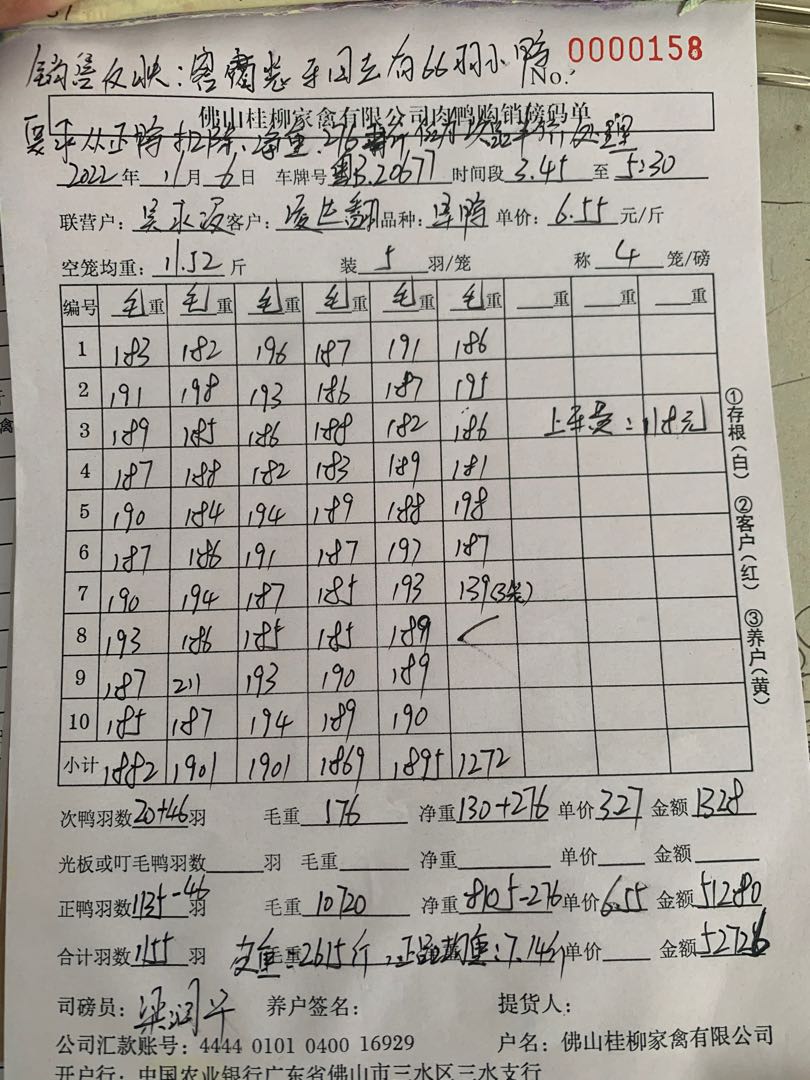 No: 0000158
佛山桂柳家禽有限公司肉鸭购销磅码单
2022年 11月 6日 车牌号 粤B.20677 时间段 3.45 至 5:30
联营户: 客户: 品种: 单价: 6.55 元/斤
空笼均重: 11.52 斤 装 5 羽/笼 称 4 笼/磅
编号 毛重 毛重 毛重 毛重 毛重 毛重 重 重 重
1 183 182 196 187 191 186
2 191 198 193 186 187 195
3 189 185 186 188 182 186 上车费:118元
4 187 188 182 183 189 181
5 190 184 194 189 188 198
6 187 186 191 187 197 187
7 190 194 187 185 193 139(3笼)
8 193 186 185 185 189
9 187 211 193 190 189
10 185 187 194 189 190
小计 1882 1901 1901 1869 1895 1272
次鸭羽数 20+46 羽 毛重 176 净重 130+276 单价 3.27 金额 1328
光板或叮毛鸭羽数 羽 毛重 净重 单价 金额
正鸭羽数 1135-46 羽 毛重 10720 净重 8105-276 单价 6.55 金额 51280
合计羽数 1155 羽 皮重:2615斤, 均重:7.14斤 单价 金额 52726
司磅员: 养户签名: 提货人:
公司汇款账号: 4444 0101 0400 16929 户名: 佛山桂柳家禽有限公司
开户行: 中国农业银行广东省佛山市三水区三水支行
①存根(白) ②客户(红) ③养户(黄)